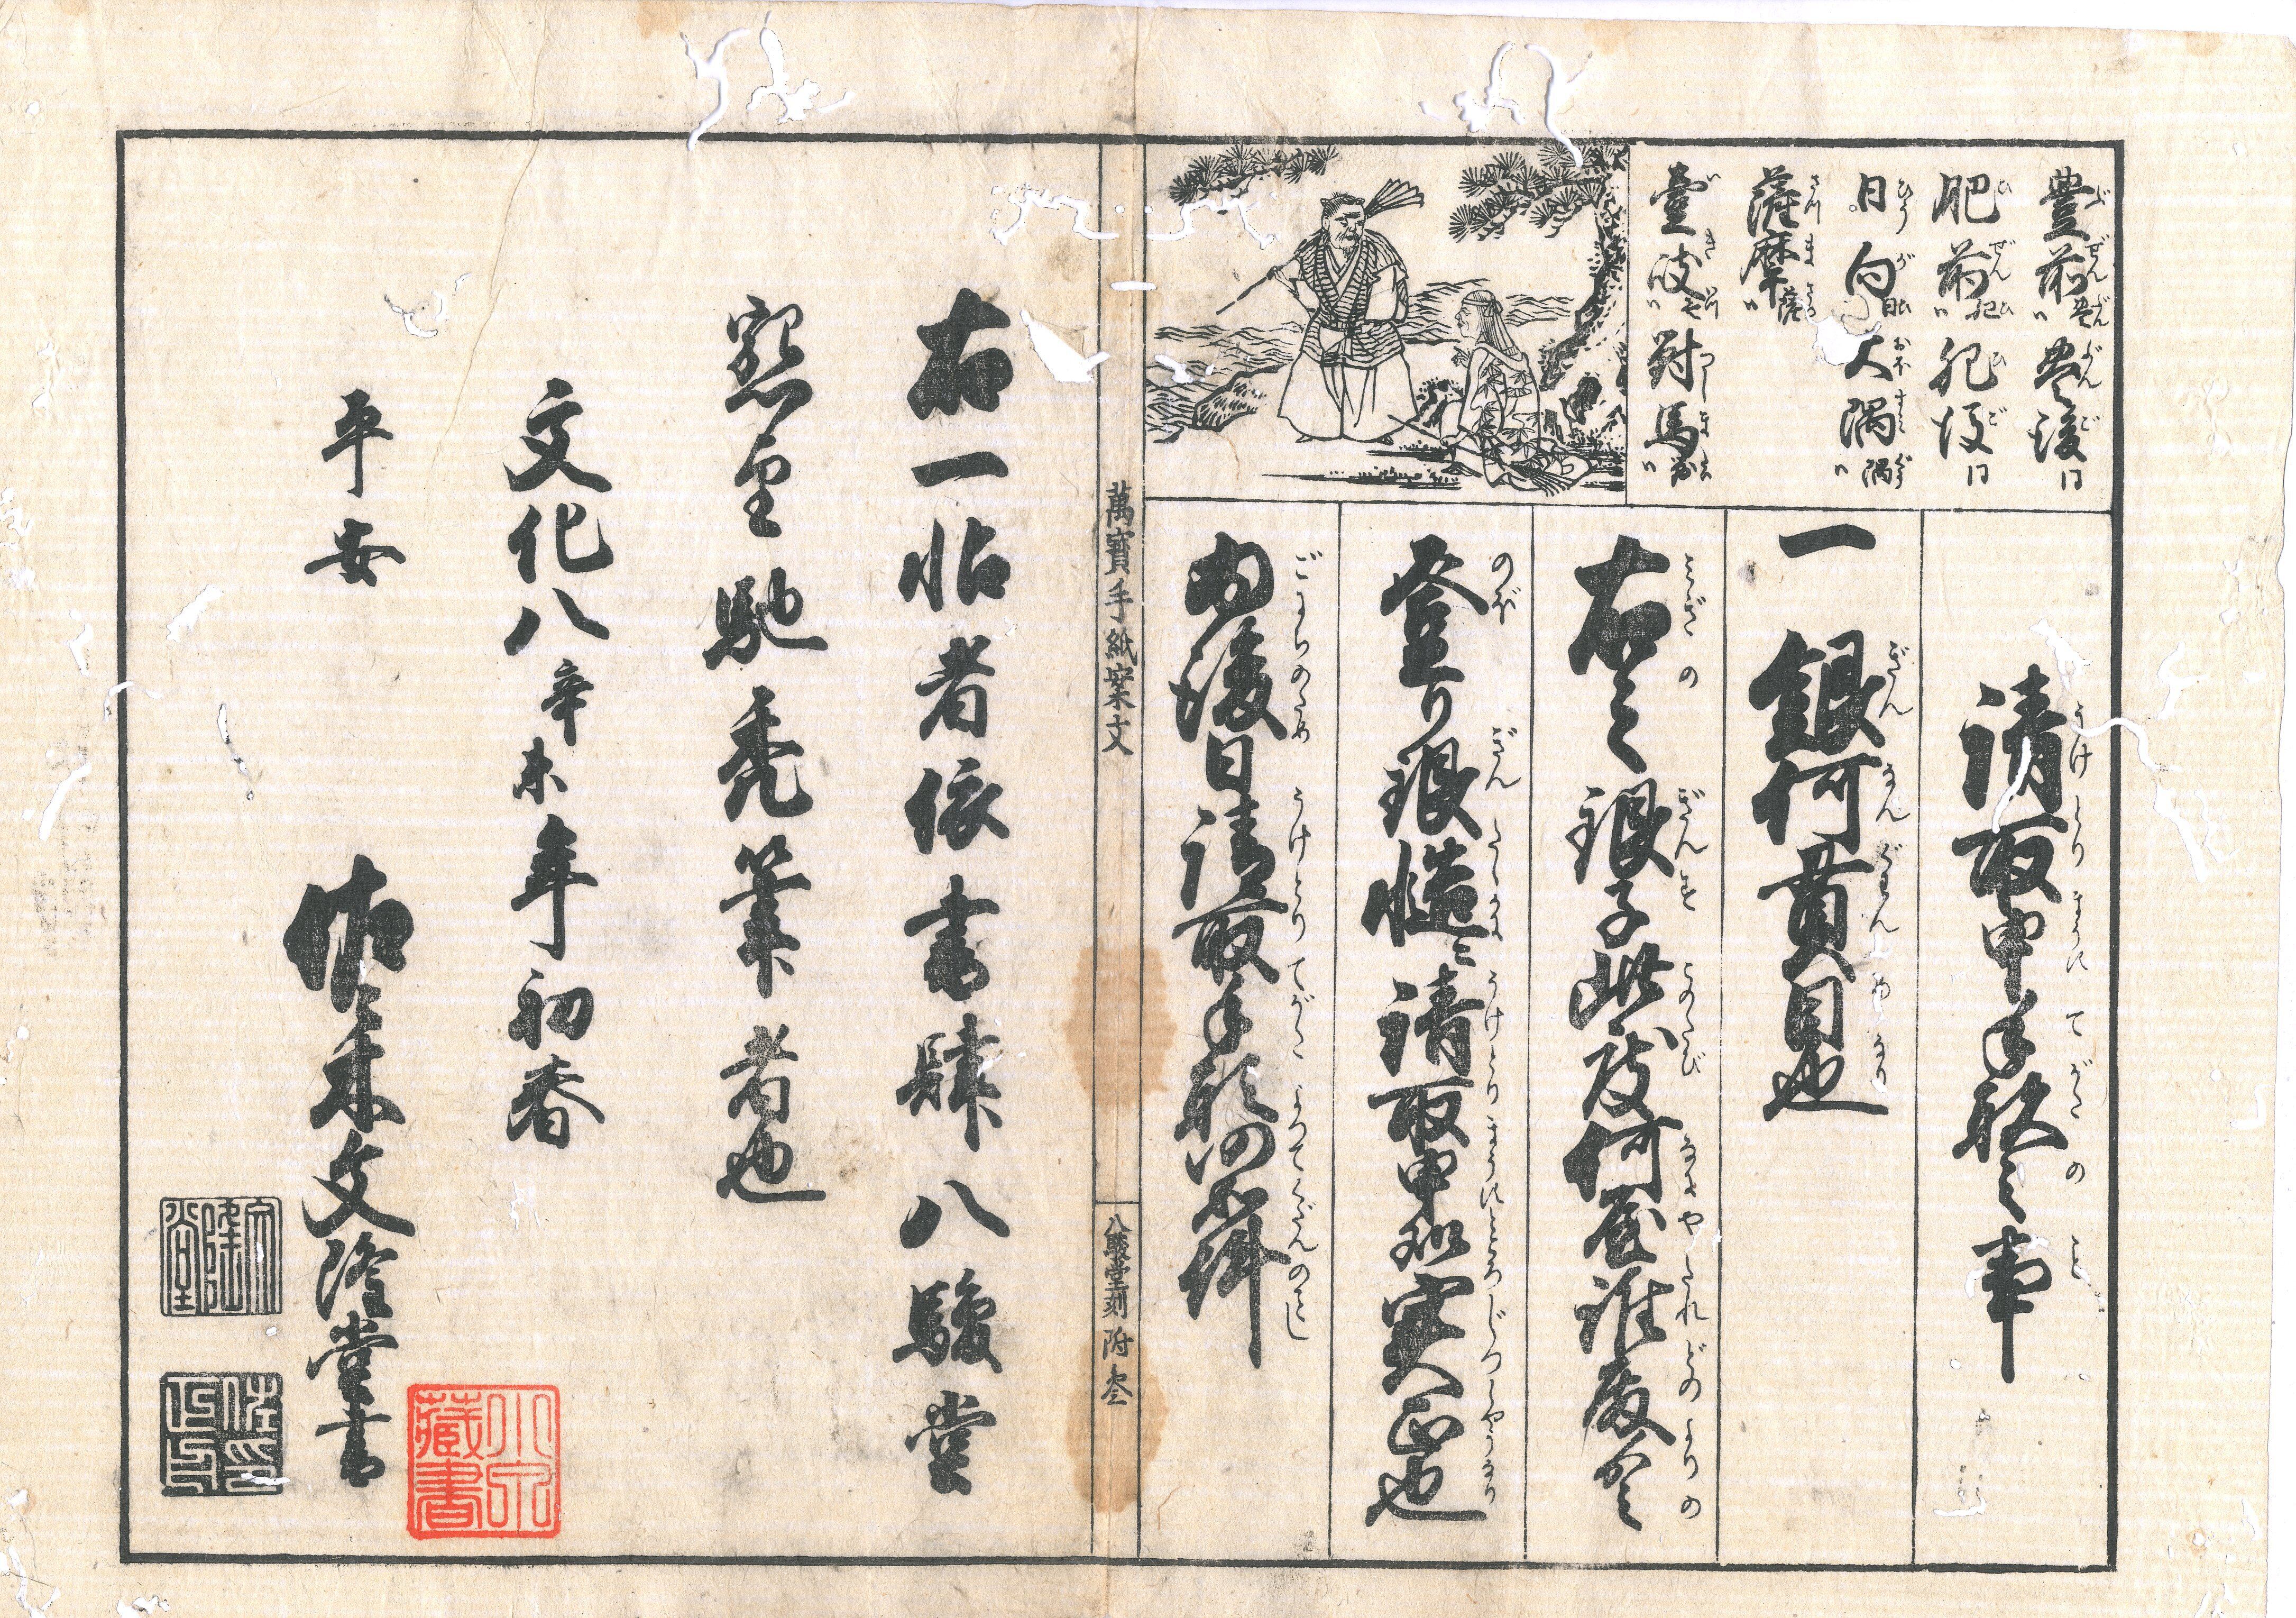 豊前〃豊 豊後〃
肥前〃肥 肥後〃
日向〃日 大隅〃隅
薩摩〃薩
壹岐〃壱 對馬〃對
請取申手形之事
一 銀何貫目也
右之銀子此度何屋誰殿より
登り銀慥ニ請取申処実正也
為後日請取手形仍如件
萬寳手紙案文
八駿堂刻 附叄
右一帖者依書肆八駿堂
懇望馳禿筆者也
文化八辛未年初春
平安
佐々木文隆堂書
文隆堂
小宮藏書